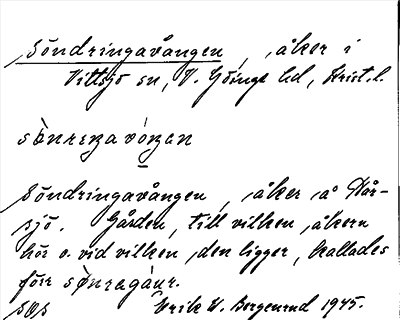 Söndringavången, åker i
Vittsjö sn, V. Göinge hd, Krist. l.
sònrɛŋavóŋən
Söndringavången, åker å
sjö. Gården, till vilken åkern
hör o. vid vilken den ligger, kallades
förr
Erik W. Bergenrud 1945.